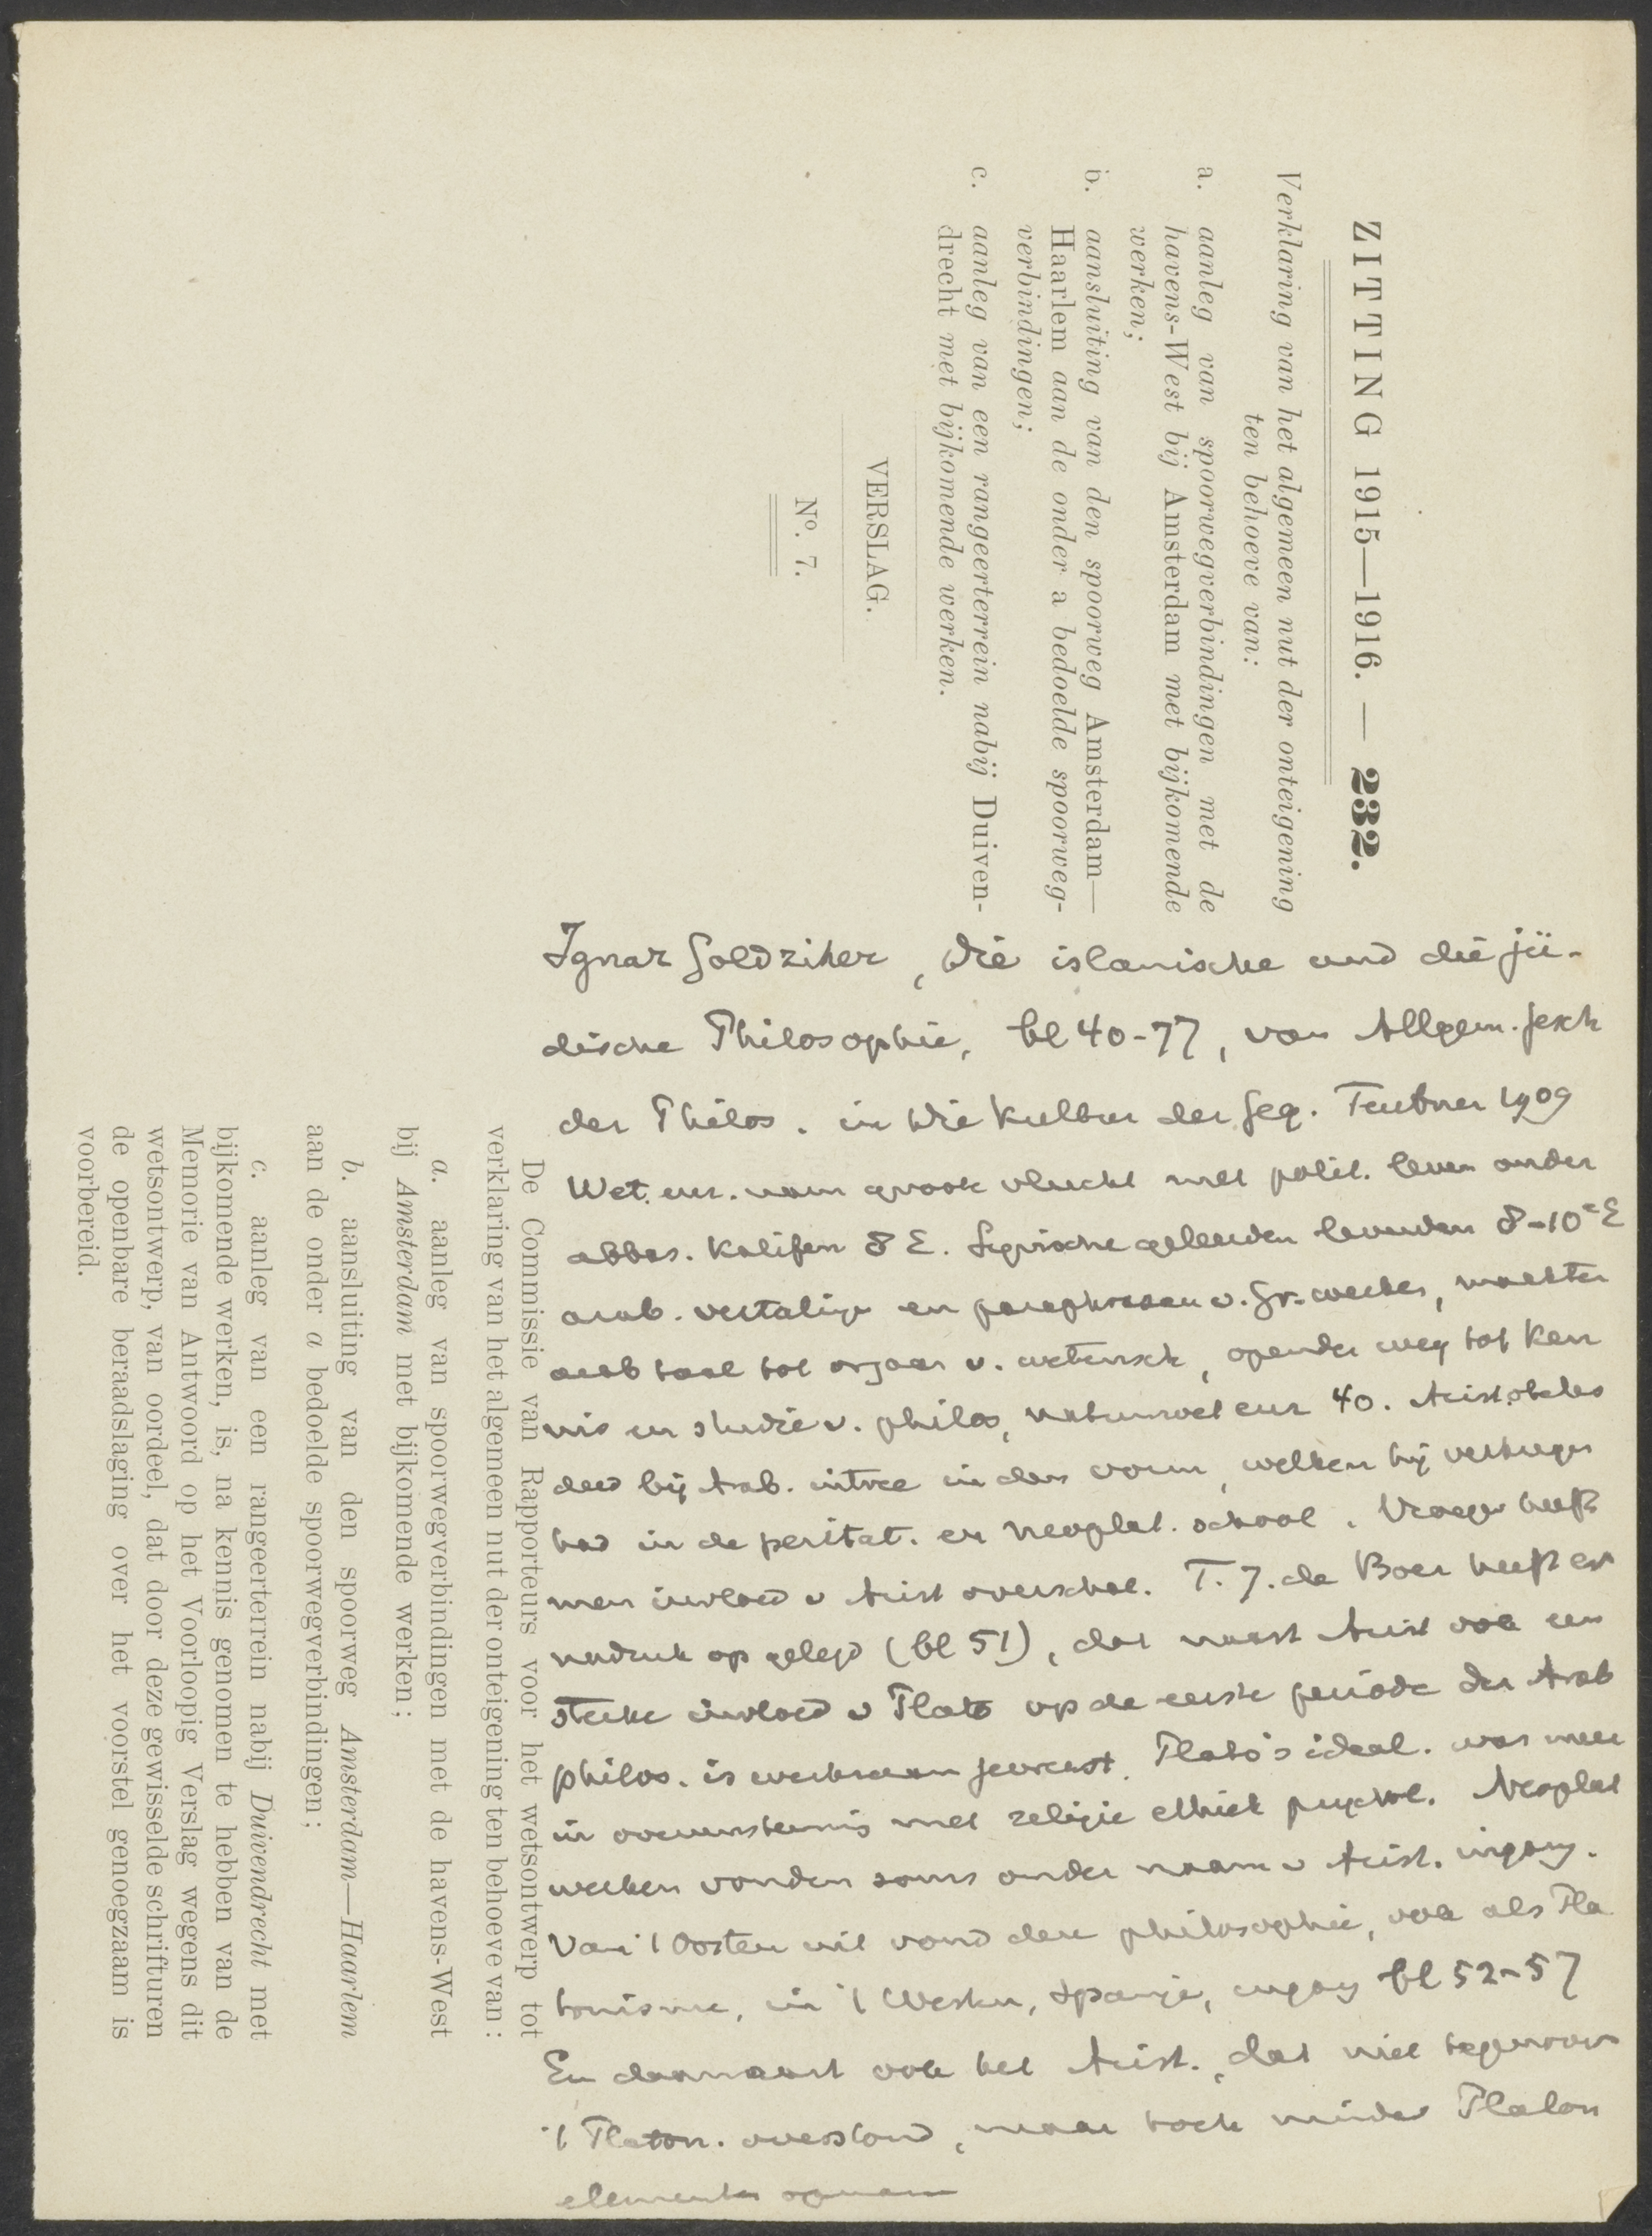 ZITTING 1915—1916. — 232.
Verklaring van het algemeen nut der onteigening
ten behoeve van:
a. aanleg van spoorwegverbindingen met de
havens-West bij Amsterdam met bijkomende
werken;
b. aansluiting van den spoorweg Amsterdam—
Haarlem aan de onder a bedoelde spoorweg-
verbindingen;
c. aanleg van een rangeerterrein nabij Duiven-
drecht met bijkomende werken.
VERSLAG.
N°. 7.
De Commissie van Rapporteurs voor het wetsontwerp tot
verklaring van het algemeen nut der onteigening ten behoeve van:
a. aanleg van spoorwegverbindingen met de havens-West
bij Amsterdam met bijkomende werken;
b. aansluiting van den spoorweg Amsterdam—Haarlem
aan de onder a bedoelde spoorwegverbindingen;
c. aanleg van een rangeerterrein nabij Duivendrecht met
bijkomende werken, is, na kennis genomen te hebben van de
Memorie van Antwoord op het Voorloopig Verslag wegens dit
wetsontwerp, van oordeel, dat door deze gewisselde schrifturen
de openbare beraadslaging over het voorstel genoegzaam is
voorbereid.
Ignaz Goldziher, Die islamische und die jü-
dische Philosophie, bl 40-77, van Allgem. Gesch
der Philos. in Die Kultur der Geg. Teubner 1909
Wet. en. nam groote vlucht met polit. leven onder
abbas. Kalifen 8 E. Syrische geleerden leverden 8-10e E
arab. vertalige en paraphrasen v. Gr. werken, maakten
arab taal tot orgaan v. wetensch, opende weg tot ken
nis en studie v. philos, natuurwet enz 40. Aristoteles
deed bij Arab. intree in den vorm, welken hij verkregen
had in de peritat. en neoplat. school. Vroeger heeft
men invloed v Arist overschat. T. J. de Boer heeft er
nadruk op gelegd (bl 51), dat naast Arist ook een
sterke invloed v Plato op de eerste periode der Arab
philos. is werkzaam geweest. Plato's ideal. was meer
in overeenstemmig met religie ethiek psychol. Neoplat
werken vonden soms onder naam v Arist. ingang.
Van 't Oosten uit vond deze philosophie, ook als Pla
tonisme, in 't Westen, Spanje, ingang bl 52-57
En daarnaast ook het Arist., dat niet tegenover
't Platon. overstond, maar toch minder Platon
elementen opnam